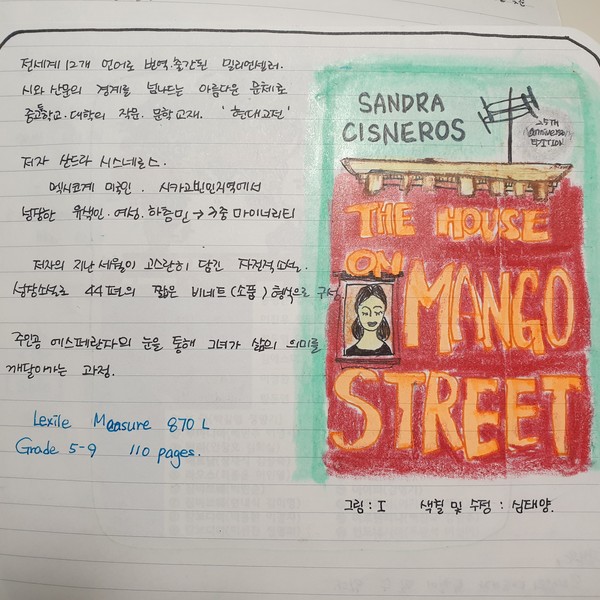 전세계 12개 언어로 번역·출간된 밀리언셀러.
시와 산문의 경계를 넘나드는 아름다운 문체로
중고등학교·대학의 작문·문학교재. '현대고전'
저자 산드라 시스네로스.
멕시코계 미국인. 시카고빈민지역에서
성장한 유색인·여성·하층민 → 3중 마이너리티
저자의 지난 세월이 고스란히 담긴 자전적소설.
성장소설로 44편의 짧은 비네트(소품) 형식으로 구성.
주인공 에스페란자의 눈을 통해 그녀가 삶의 의미를
깨달아가는 과정.
Lexile Measure 870 L
Grade 5-9 110 pages.
SANDRA
CISNEROS
25TH
Anniversary
EDITION
THE HOUSE
ON
MANGO
STREET
그림 : I 색칠 및 수정 : 심태양.